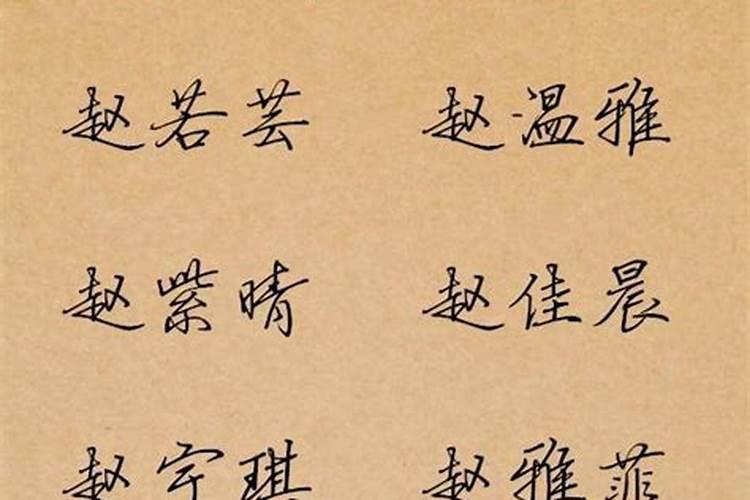 赵若芸 赵温雅
赵紫晴 赵佳晨
赵宇琪 赵雅菲